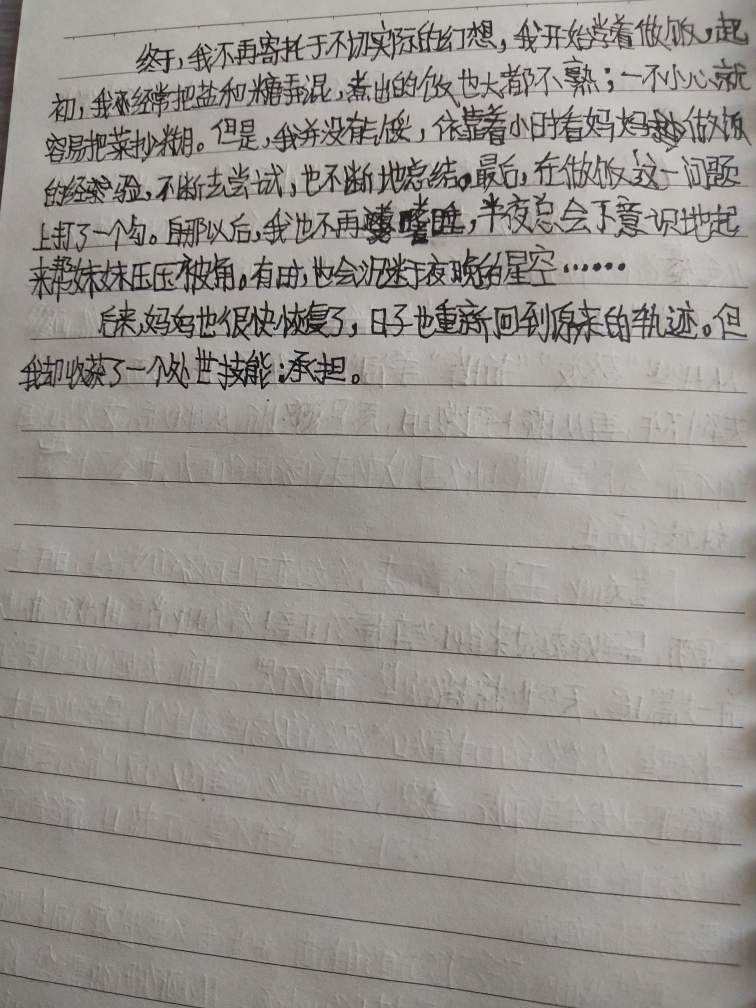 终于,我不再寄托于不切实际的幻想,我开始尝着做饭,起
初,我经常把盐和糖弄混,煮出的饭也大都不熟;一不小心就
容易把菜抄糊。但是,我并没有气馁,依靠着小时看妈妈做饭
的经验,不断去尝试,也不断地总结。最后,在做饭这一问题
上打了一个勾。自那以后,我也不再嗜睡,半夜总会下意识地起
来帮妹妹压压被角。有时,也会沉迷于夜晚的星空……
后来,妈妈也很快恢复了,日子也重新回到原来的轨迹。但
我却收获了一个处世技能:承担。